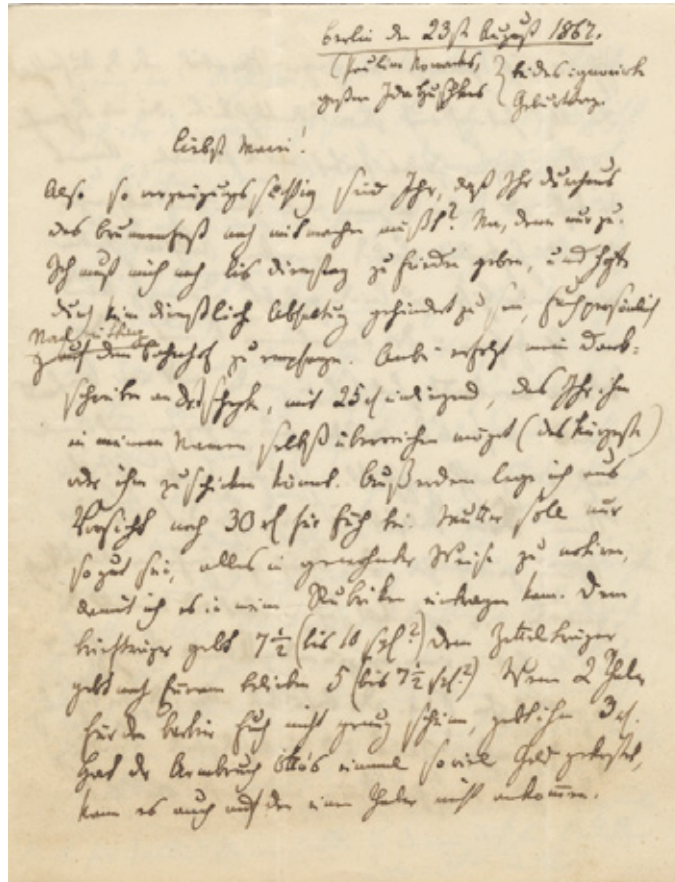 Berlin den 23st August 1867.
(Pauline
gestern Ida Huschkes } beides ignorirte Geburtstage
liebst Marie!
Also so vergnügungssüchtig seid Ihr, daß Ihr durchaus
das Brunnenfest noch mitmachen müßt? Na, denn nur zu.
Ich muß mich noch bis Dienstag zufrieden geben, und
durch kein dienstlich gehindert zu sein, Euch persönlich
Nachmittag
auf dem Bahnhof zu empfangen. Anbei erfolgt mein Dank-
schreiben an Dr. mit 25 rl einliegend, das Ihr ihm
in meinem Namen selbst überreichen möget (das Kürzeste)
oder ihm zuschicken könnt. Außerdem lege ich aus
Vorsicht noch 30 rl für Euch bei. Mutter soll nur
so gut sein, alles in gewohnter Weise zu notiren,
damit ich es in mein Rubriken eintragen kann. Dem
gebt 7½ (bis 10 sgl.?) dem Zettelträger
gebt nach Eurem belieben 5 (bis 7½ sgl.?) Wenn 2 Thaler
für den Euch nicht genug scheinen, gebt ihm 3 rl.
Hat der Armbruch Otto's einmal soviel Geld gekostet,
kann es auch auf den einen Thaler nicht ankommen.